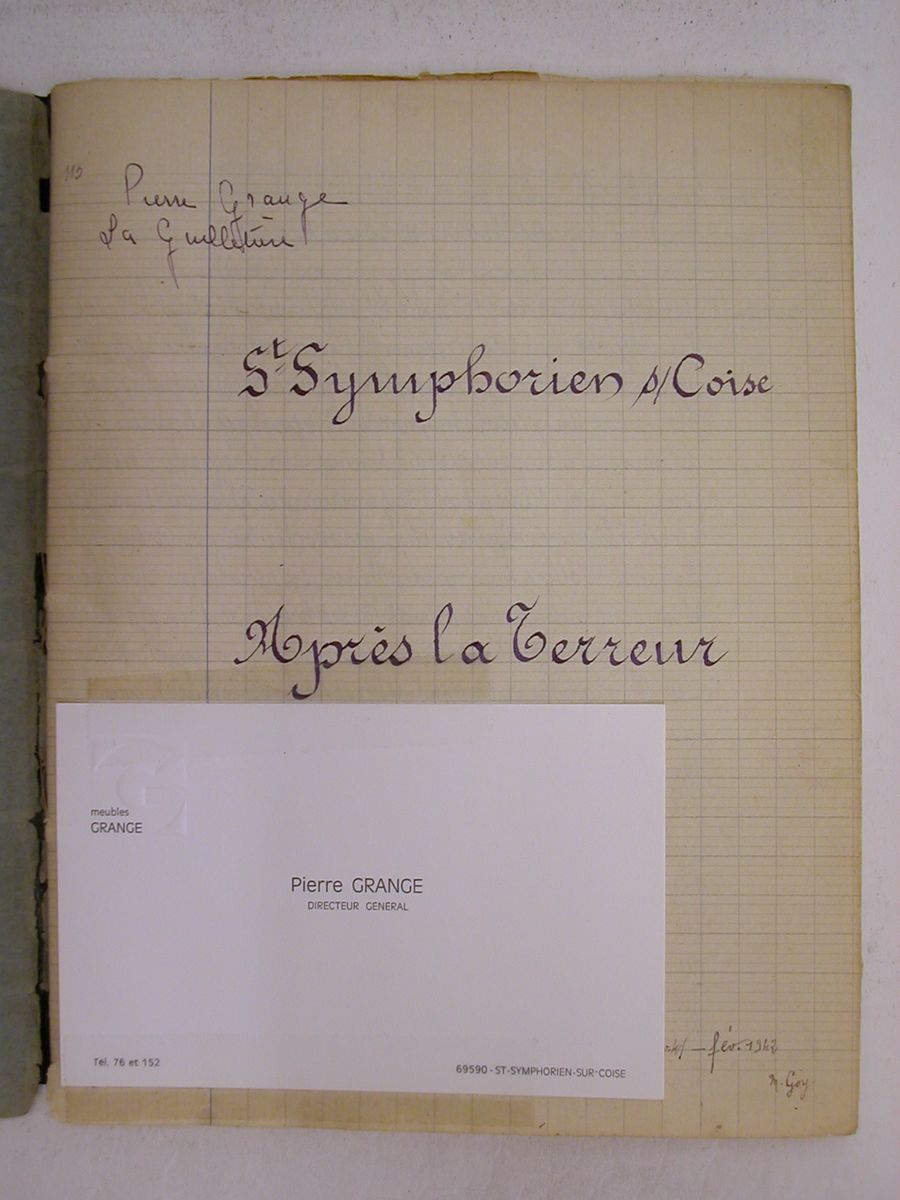 115
Pierre Grange
La Guilletière
St Symphorien s/Coise
Après la Terreur
G
meubles
GRANGE
Pierre GRANGE
DIRECTEUR GENERAL
Tél. 76 et 152
69590 - ST-SYMPHORIEN-SUR-COISE
41 - fév. 1942
M. Goy